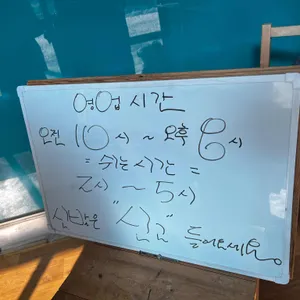 영업시간
오전 10시 ~ 오후 6시
= 쉬는시간 =
2시 ~ 5시
신발은 "신고" 들어오세요.